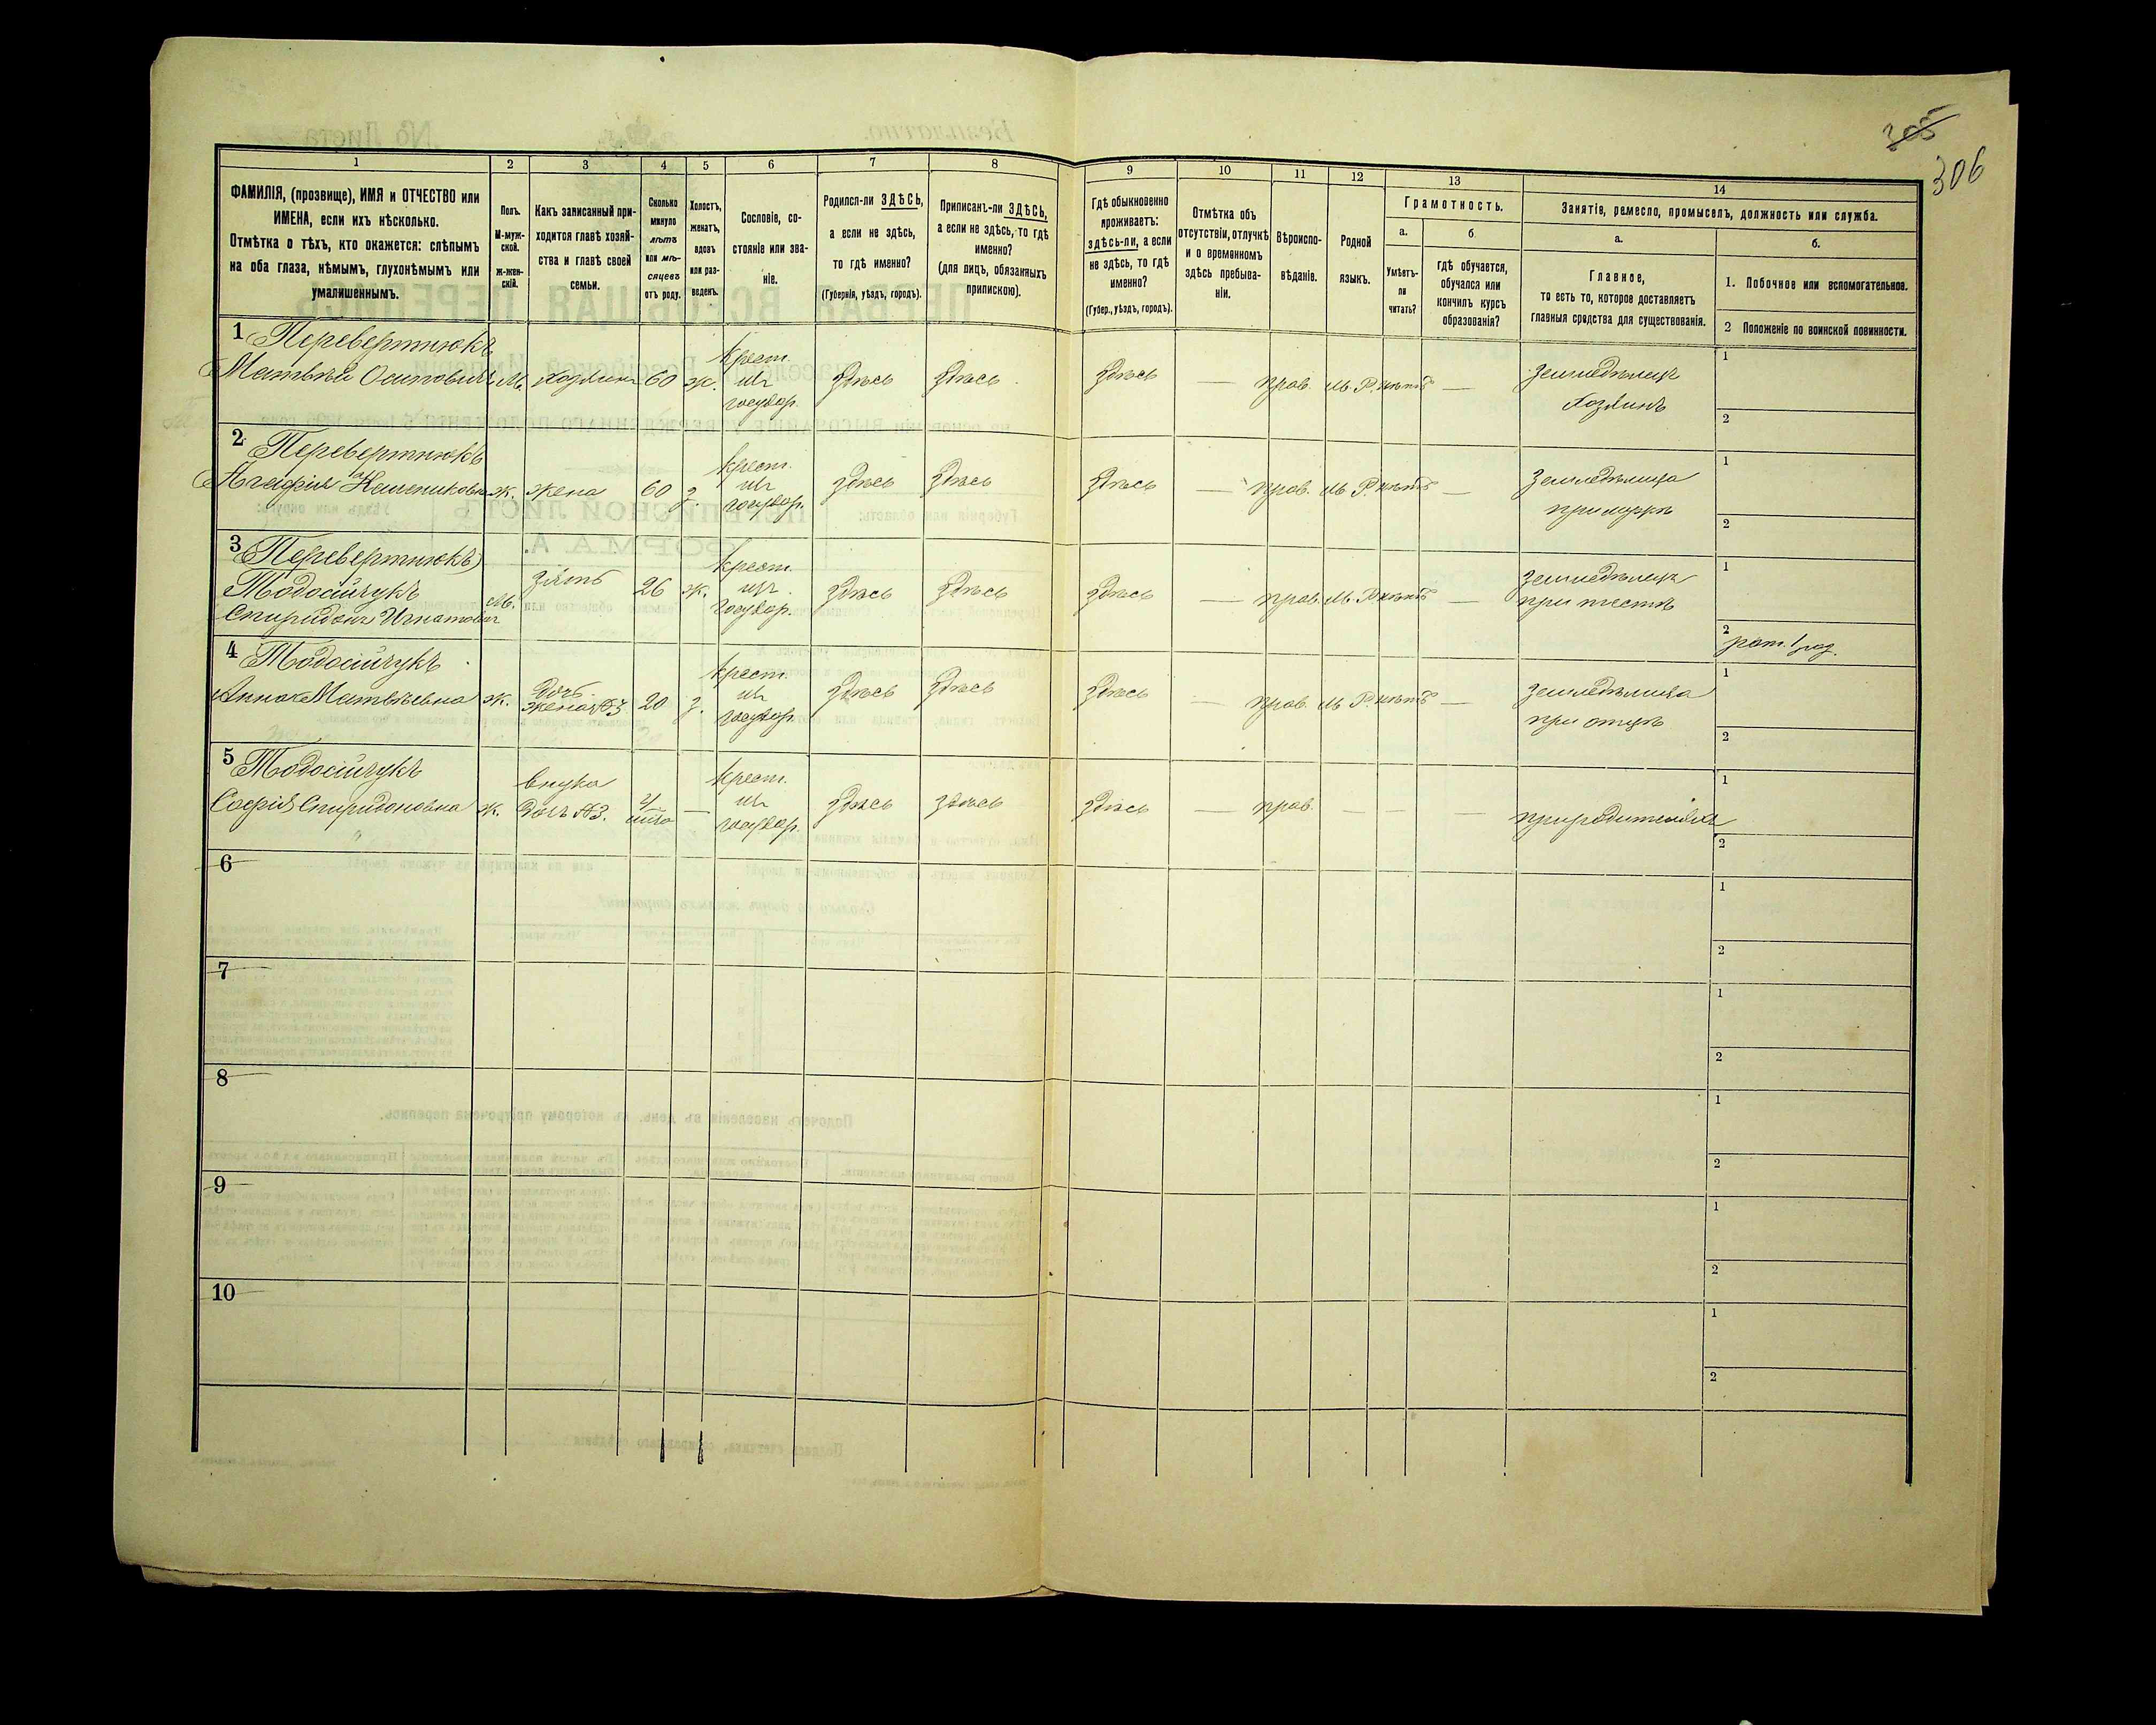 305
306
1
2
3
4
5
6
7
8
9
10
11
12
13
14
ФАМИЛІЯ, (прозвище), ИМЯ и ОТЧЕСТВО или
ИМЕНА, если ихъ нѣсколько.
Отмѣтка о тѣхъ, кто окажется: слѣпымъ
на оба глаза, нѣмымъ, глухонѣмымъ или
умалишеннымъ.
Полъ.
М-муж-
ской.
ж-жен-
скій.
Какъ записанный при-
ходится главѣ хозяй-
ства и главѣ своей
семьи.
Сколько
минуло
лѣтъ
или мѣ-
сяцевъ
отъ роду.
Холостъ,
женатъ,
вдовъ
или раз-
веденъ.
Сословіе, со-
стояніе или зва-
ніе.
Родился-ли ЗДѢСЬ,
а если не здѣсь,
то гдѣ именно?
(Губернія, уѣздъ, городъ).
Приписанъ-ли ЗДѢСЬ,
а если не здѣсь, то гдѣ
именно?
(для лицъ, обязанныхъ
припискою).
Гдѣ обыкновенно
проживаетъ:
здѣсь-ли, а если
не здѣсь, то гдѣ
именно?
(Губер., уѣздъ, городъ).
Отмѣтка объ
отсутствіи, отлучкѣ
и о временномъ
здѣсь пребыва-
ніи.
Вѣроиспо-
вѣданіе.
Родной
языкъ.
Грамотность.
а.
Умѣетъ-
ли
читать?
б
гдѣ обучается,
обучался или
кончилъ курсъ
образованія?
Занятіе, ремесло, промыселъ, должность или служба.
а.
Главное,
то есть то, которое доставляетъ
главныя средства для существованія.
б.
1. Побочное или вспомогательное.
2 Положеніе по воинской повинности.
1 Перевертнюкъ
Матвѣй Осиповичъ М. хозяинъ 60 ж. крест. изъ государ. здѣсь здѣсь здѣсь — прав. М. Р. нѣтъ — Земледѣлецъ
Хозяинъ
1
2
2 Перевертнюкъ
Агафія ж. жена 60 з. крест. изъ государ. здѣсь здѣсь здѣсь — прав. М. Р. нѣтъ — Земледѣлица
при мужѣ
1
2
3 (Перевертнюкъ)
Тодосійчукъ
Спиридонъ Игнатовичъ М. зять 26 ж. крест. изъ государ. здѣсь здѣсь здѣсь — прав. М. Р. нѣтъ — земледѣлецъ
при тестѣ
1
2 рат. 1 раз.
4 Тодосійчукъ
Анна Матвѣевна ж. дочь жена №3 20 з. крест. изъ государ. здѣсь здѣсь здѣсь — прав. М. Р. нѣтъ — земледѣлица
при отцѣ
1
2
5 Тодосійчукъ
Софія Спиридоновна ж. внука дочь №3. — крест. изъ государ. здѣсь здѣсь здѣсь — прав. — — — при родителяхъ
1
2
6
1
2
7
1
2
8
1
2
9
1
2
10
1
2